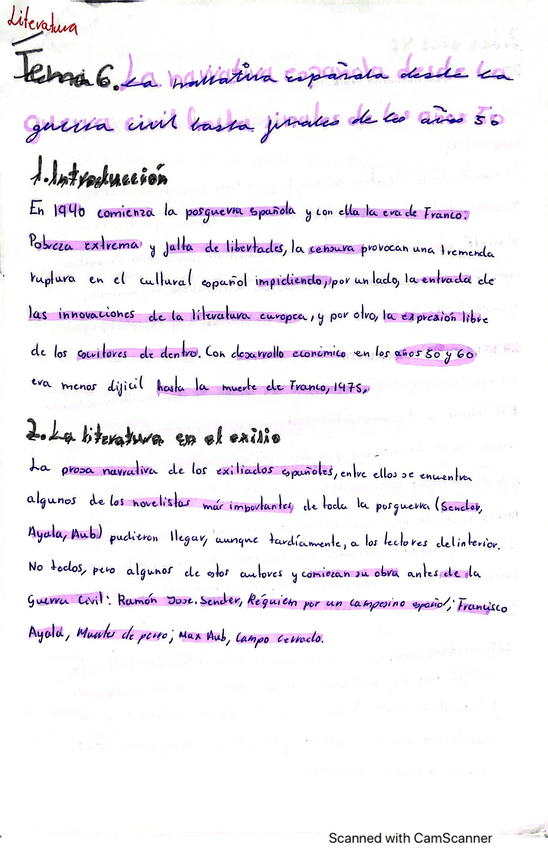 Literatura
Tema 6. La narrativa española desde la
guerra civil hasta finales de los años 50
1. Introducción
En 1940 comienza la posguerra española y con ella la era de Franco.
Pobreza extrema y falta de libertades, la censura provocan una tremenda
ruptura en el cultural español impidiendo, por un lado, la entrada de
las innovaciones de la literatura europea, y por otro, la expresión libre
de los escritores de dentro. Con desarrollo económico en los años 50 y 60
era menos difícil hasta la muerte de Franco, 1975.
2. La literatura en el exilio
La prosa narrativa de los exiliados españoles, entre ellos se encuentra
algunos de los novelistas más importantes de toda la posguerra (Sender,
Ayala, Aub) pudieron llegar, aunque tardíamente, a los lectores del interior.
No todos, pero algunos de estos autores y comiezan su obra antes de la
Guerra Civil: Ramón Jose Sender, Réquiem por un campesino español; Francisco
Ayala, Muertes de perro; Max Aub, Campo cerrado.
Scanned with CamScanner